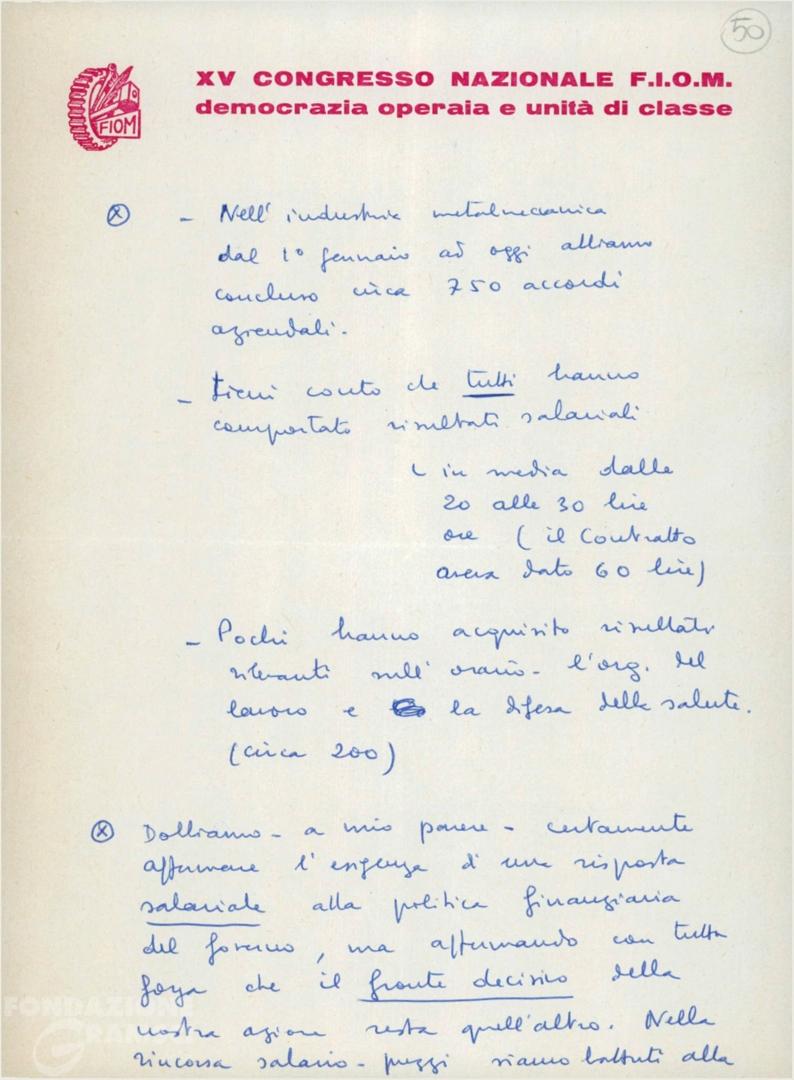 50
XV CONGRESSO NAZIONALE F.I.O.M.
democrazia operaia e unità di classe
FIOM
(x) - Nell'industria metalmeccanica
dal 1° gennaio ad oggi abbiamo
concluso circa 750 accordi
aziendali.
- Tieni conto che tutti hanno
comportato risultati salariali
( in media dalle
20 alle 30 lire
ore ( il Contratto
aveva dato 60 lire)
- Pochi hanno acquisito risultati
rilevanti sull'orario - l'org. del
lavoro e la difesa della salute.
(circa 200)
(x) Dobbiamo - a mio parere - certamente
affermare l'esigenza di una risposta
salariale alla politica finanziaria
del governo, ma affermando con tutta
forza che il fronte decisivo della
nostra azione resta quell'altro. Nella
rincorsa salario-prezzi siamo battuti alla
FONDAZIONE
GRAMSCI